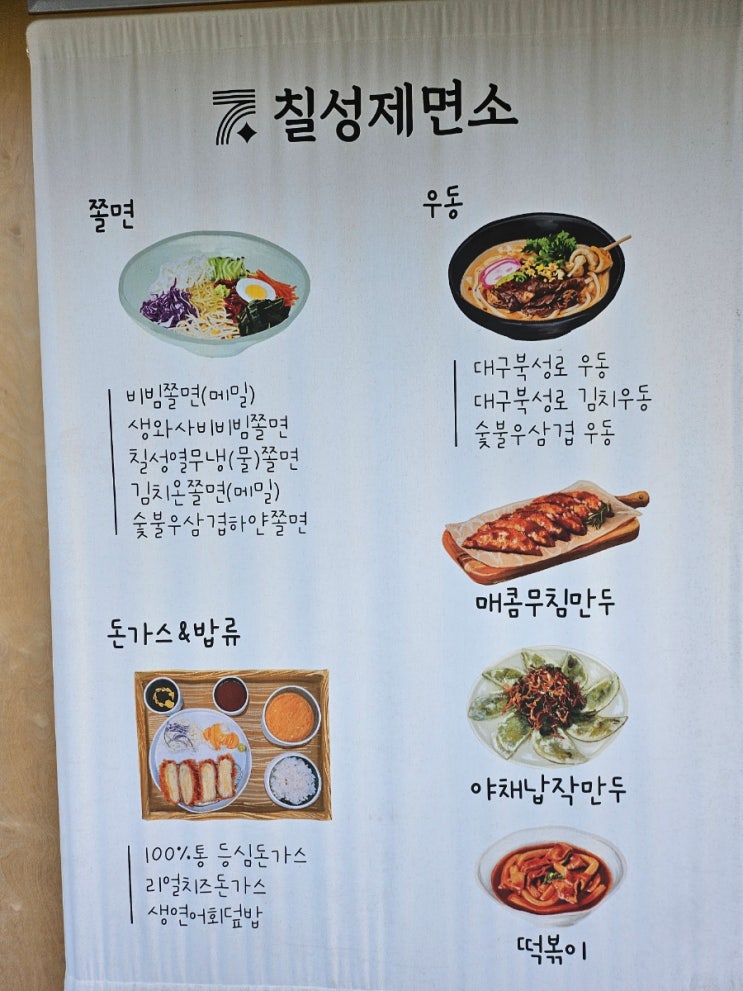 칠성제면소
쫄면
비빔쫄면(메밀)
생와사비비빔쫄면
칠성열무냉(물)쫄면
김치온쫄면(메밀)
숯불우삼겹하얀쫄면
우동
대구북성로 우동
대구북성로 김치우동
숯불우삼겹 우동
매콤무침만두
돈가스&밥류
100%통 등심돈가스
리얼치즈돈가스
생연어회덮밥
야채납작만두
떡볶이